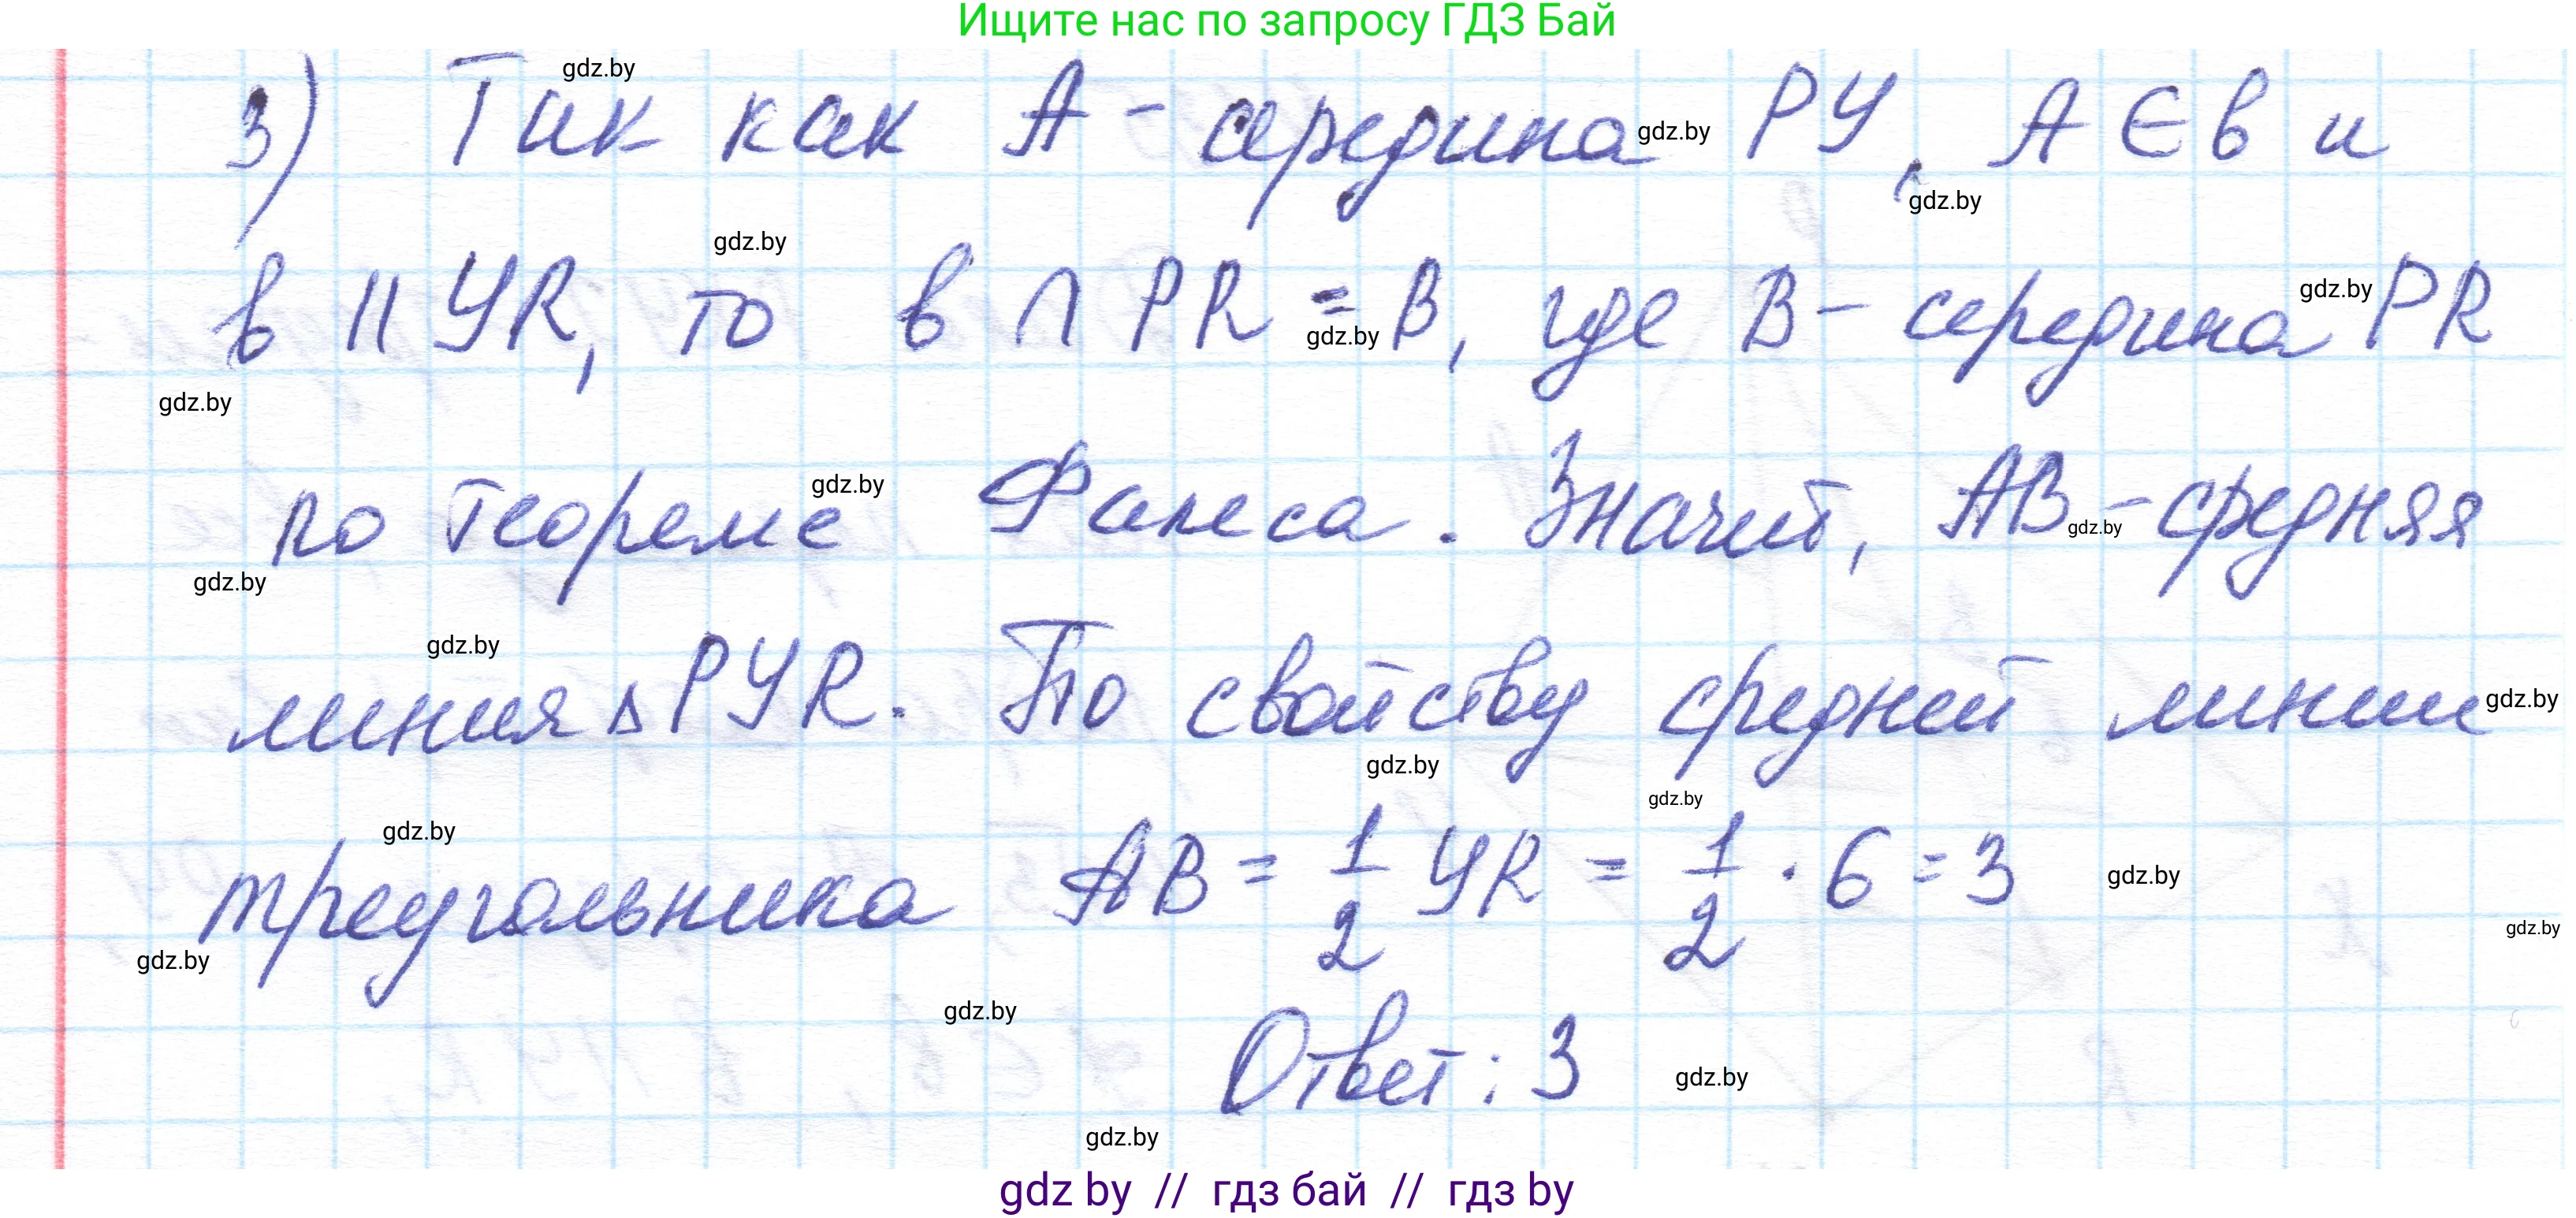 Ищите нас по запросу ГДЗ Бай
gdz.by
3) Так как А - середина РУ, А ∈ в и
gdz.by
gdz.by
gdz.by
в || УR, то в ∩ PR = В, где В - середина PR
gdz.by
gdz.by
gdz.by
по теореме Фалеса. Значит, АВ - средняя
gdz.by
gdz.by
gdz.by
gdz.by
линия Δ РУR. По свойству средней линии
gdz.by
gdz.by
gdz.by
gdz.by
треугольника АВ = 1/2 УR = 1/2 · 6 = 3
gdz.by
gdz.by
gdz.by
gdz.by
Ответ: 3
gdz.by
gdz.by
gdz by // гдз бай // гдз by